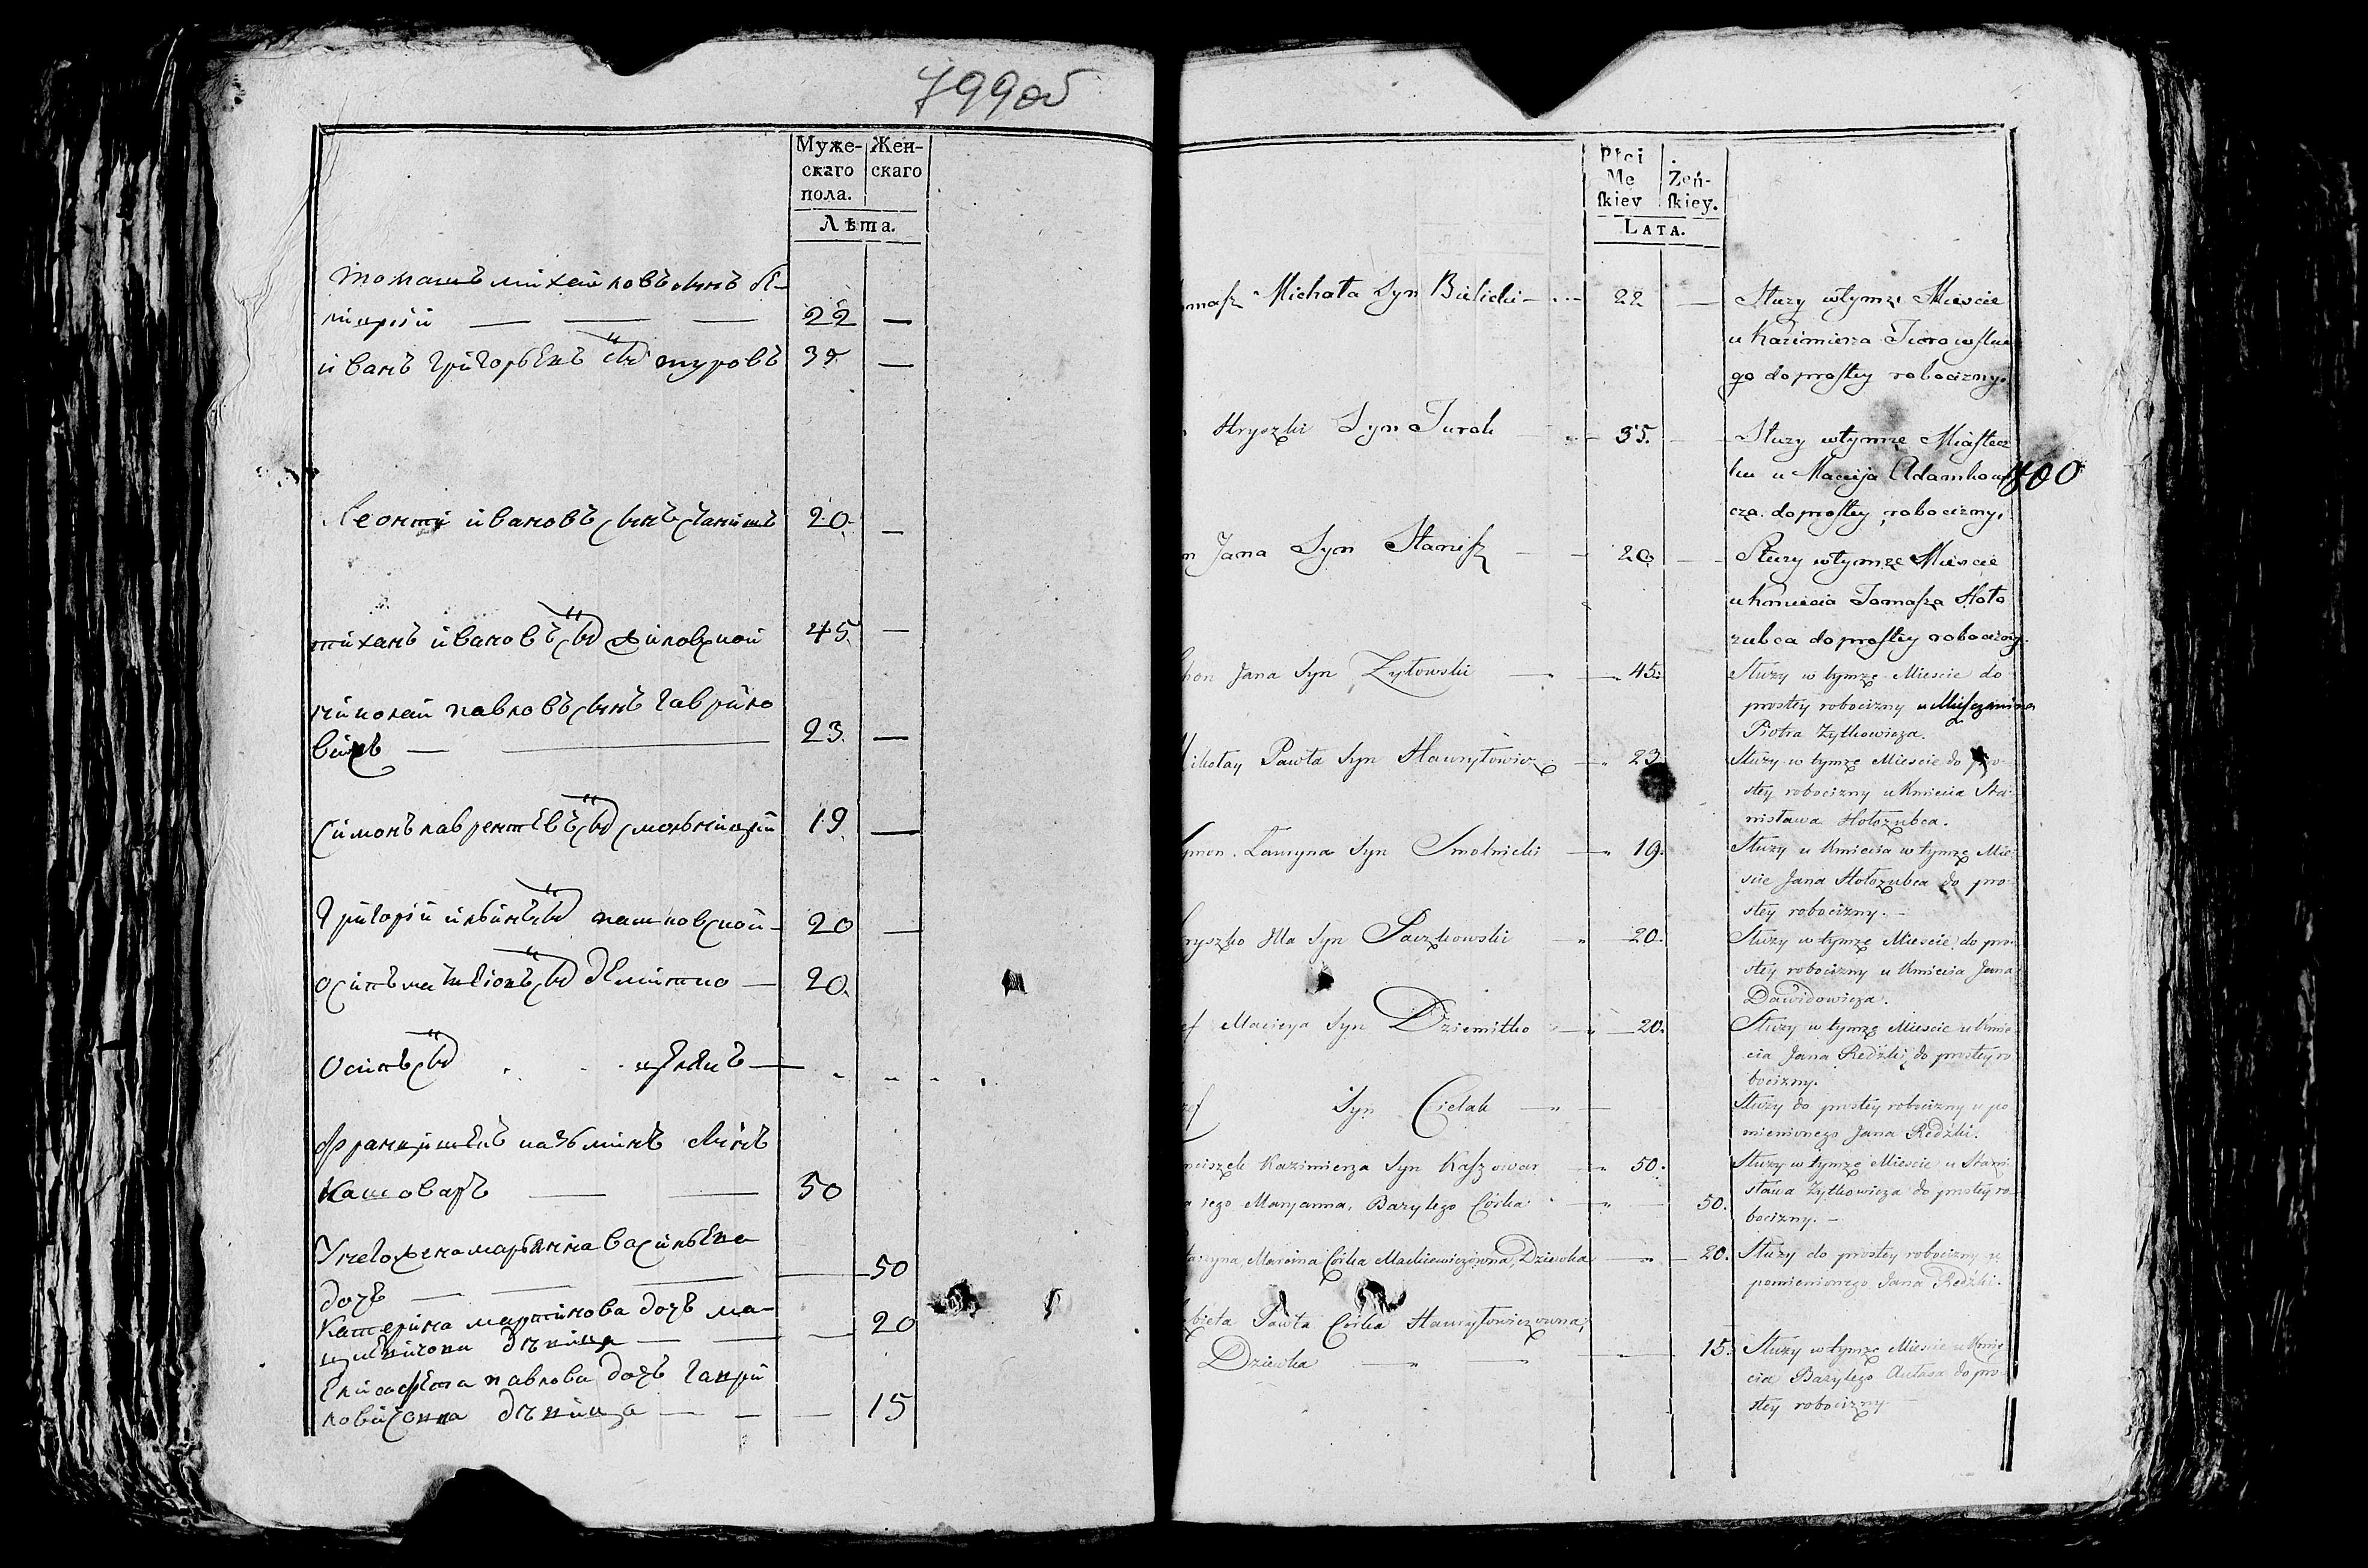 799об
Муже-
скаго
пола.
Жен-
скаго
Лѣта.
Томашъ михайловъ сынъ бѣ-
лицкій — — — 22 —
иванъ григорьевъ снъ туровъ 35 —
Леонтй ивановъ сынъ станишъ 20 —
тиханъ ивановъ снъ жиловской 45 —
николай павловъ сынъ гаврило
вичъ — — 23 —
симонъ лаврентьевъ снъ смольницкій 19 —
григорій ильинъ снъ пашковской 20 —
осипъ матвѣіовъ снъ демитко — 20
осипъ снъ целякъ —
францишекъ казьминъ сынъ
кашоваръ — — 50
У него жена марьянна васильева
дочь — — 50
катерина мартинова дочь ма-
девица — — 20
Елисавета павлова дочь гаври
девица — — 15
Płci
Mę
skiey
Żeń-
skiey.
LATA.
omasz Michała Syn Bielicki — 22 —
Służy w tymże Mieście
u Kazimierza
go do prostey robocizny.
Hryszki Syn Turek — 35. —
Służy w tymże Miastecz
ku u Macieja Adamkowi
cza do prostey robocizny.
800
n Jana Syn Stanisz — 20 —
Służy w tymże Mieście
u Kmiecia Tomasza Hoło
zubca do prostey robocizny.
hon Jana Syn Żyłowski — 45.
Służy w tymże Mieście do
prostey robocizny u Mieszczanina
Piotra Żytkowicza.
ikołay Pawła Syn Hawryłowicz — 23
Służy w tymże Mieście do pro-
stey robocizny u Kmiecia Sta-
nisława Hołozubca.
ymon Lauryna Syn Smolnicki — 19.
Służy u Kmiecia w tymże Mie-
ście Jana Hołozubca do pro-
stey robocizny. —
ryszko Illa Syn Paszkowski — 20.
Służy w tymże Mieście do pro-
stey robocizny u Kmiecia Jana
Dawidowicza.
ef Macieya Syn Dziemitko — 20.
Służy w tymże Mieście u Kmie-
cia Jana Redzki do prostey ro-
bocizny.
zef Syn Cielak —
Służy do prostey robocizny u po
mienionego Jana Redzki.
nciszek Kazimierza Syn Kaszowar — 50.
Służy w tymże Mieście u Stani
sława Żytkowicza do prostey ro-
bocizny. —
a jego Maryanna, Bazylego Córka — 50.
arzyna, Marcina Córka Mackiewiczówna, Dziewka — 20.
Służy do prostey robocizny u
pomienionego Jana Redzki.
bieta Pawła Córka Hawryłowiczowna,
Dziewka — — — 15.
Służy w tymże Mieście u Kmie
cia Bazylego do pro-
stey robocizny —